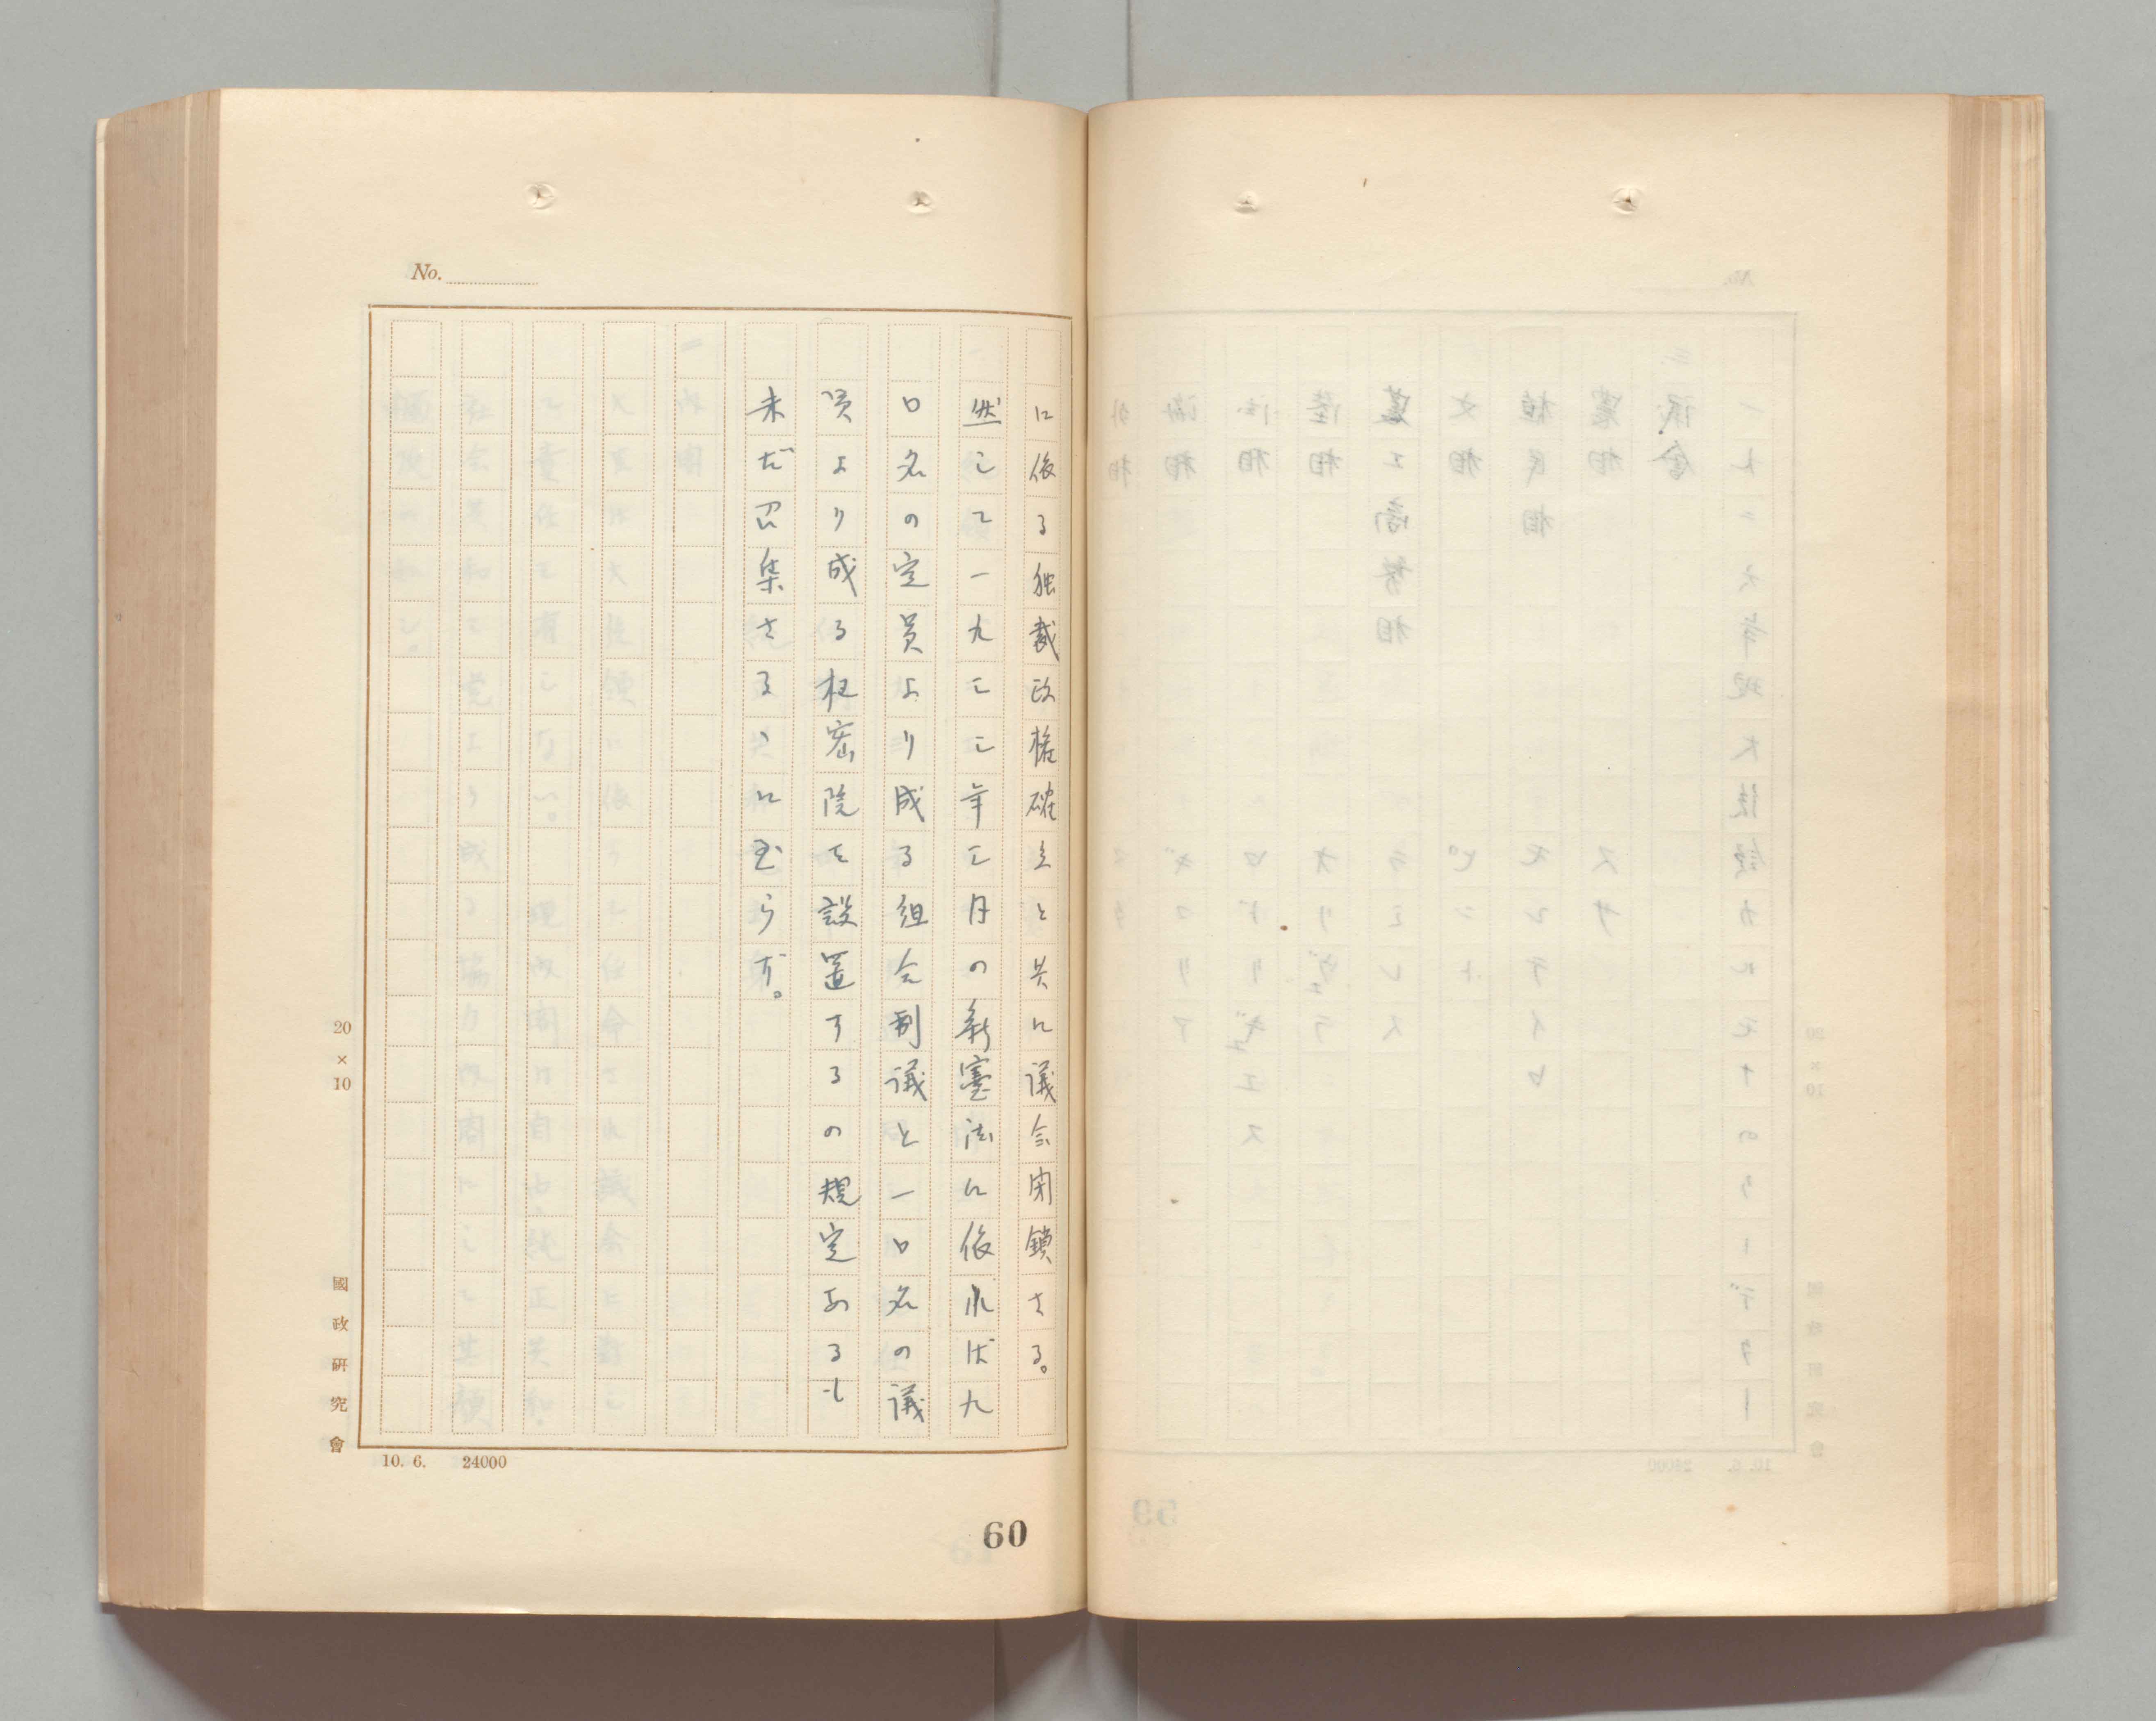 No.
に依る独裁政権確立と共に議会閉鎖さる。
然して一九三三年三月の新憲法に依れば九
〇名の定員より成る組合制議と一〇名の議
員より成る枢密院を設置するの規定あるも
未だ召集さるゝに至らず。
20×10
國政研究會
10. 6. 24000
60